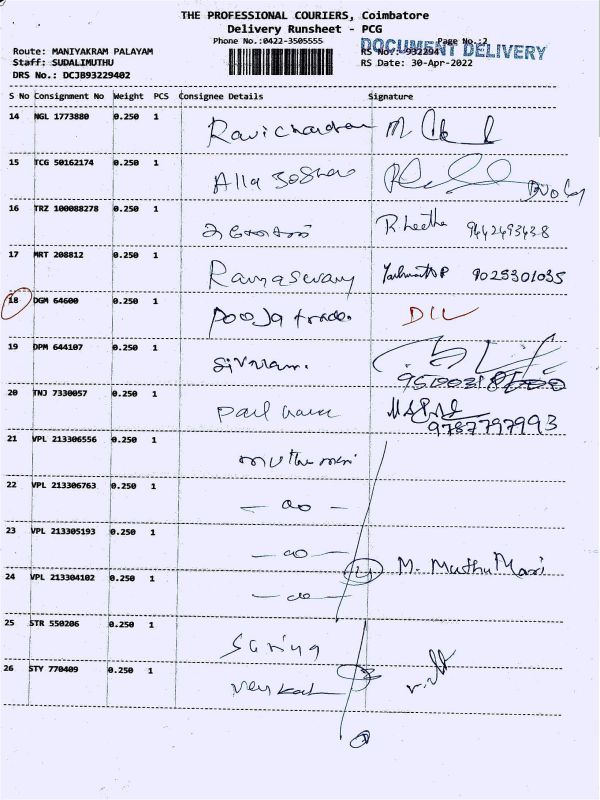 THE PROFESSIONAL COURIERS, Coimbatore
Delivery Runsheet - PCG
Phone No.:0422-3505555 Page No.:2
DOCUMENT DELIVERY
Route: MANIYAKRAM PALAYAM RS No.: 932294
Staff: SUDALIMUTHU RS Date: 30-Apr-2022
DRS No.: DCJB93229402
S No Consignment No Weight PCS Consignee Details Signature
14 NGL 1773880 0.250 1 Ravichandran M
15 TCG 50162174 0.250 1 Alla
16 TRZ 100088278 0.250 1 R heetha 9442493438
17 MRT 208812 0.250 1 Ramaswamy 9025301035
18 DGM 64600 0.250 1 Pooja trade.
19 DPM 644107 0.250 1 Sivram.
20 TNJ 7330057 0.250 1 Paul 9787797993
21 VPL 213306556 0.250 1 muthu mari
22 VPL 213306763 0.250 1 - do -
23 VPL 213305193 0.250 1 - do -
4 M. Muthu Mari
24 VPL 213304102 0.250 1 - do -
25 STR 550206 0.250 1 Sariya
26 STY 770409 0.250 1 Venkat